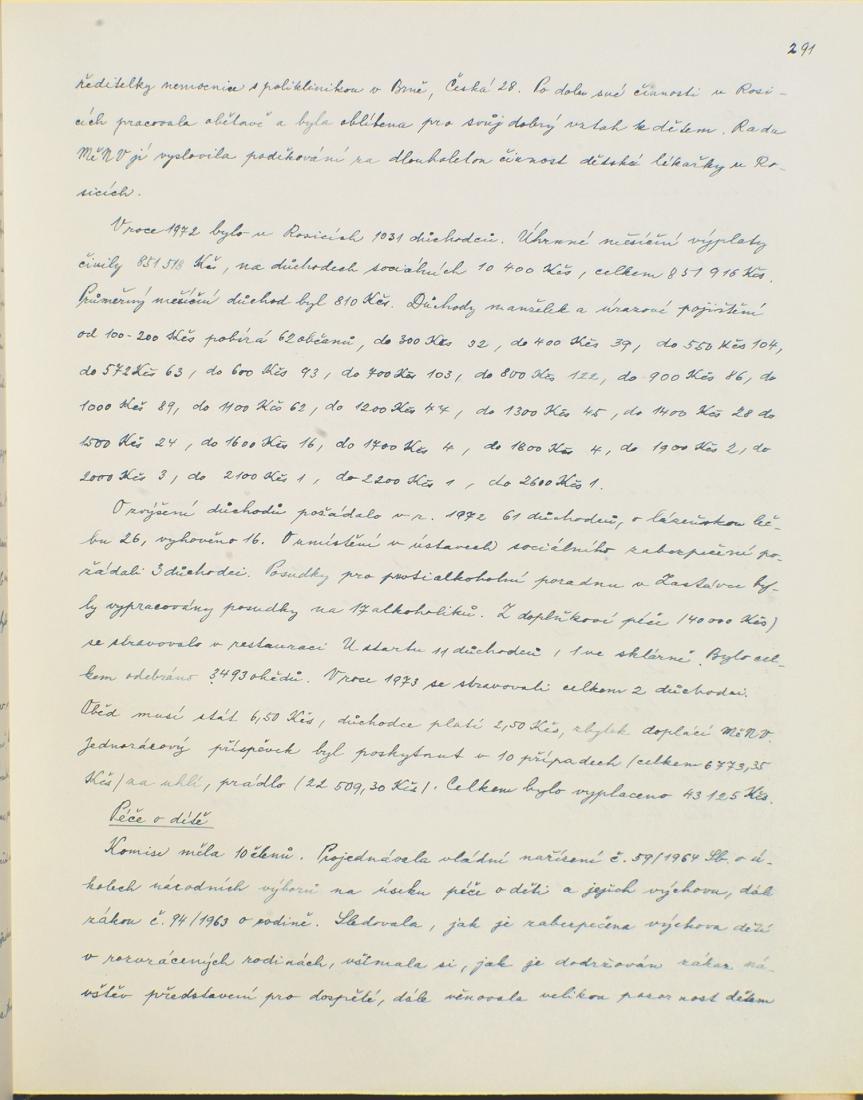 291
ředitelky nemocnice s poliklinikou v Brně, Česká 28. Po dobu své činnosti v Rosi-
cích pracovala obětavě a byla oblíbena pro svůj dobrý vztah k dětem. Rada
MěNV jí vyslovila poděkování za dlouholetou činnost dětské lékařky v Ro-
sicích.
V roce 1972 bylo v Rosicích 1031 důchodců. Úhrnné měsíční výplaty
činily 851 518 Kčs, na důchodech sociálních 10 400 Kčs, celkem 851 916 Kčs.
Průměrný měsíční důchod byl 810 Kčs. Důchody manželek a úrazové pojištění
od 100-200 Kčs pobírá 62 občanů, do 300 Kčs 32, do 400 Kčs 39, do 550 Kčs 104,
do 572 Kčs 63, do 600 Kčs 93, do 700 Kčs 103, do 800 Kčs 122, do 900 Kčs 86, do
1000 Kčs 89, do 1100 Kčs 62, do 1200 Kčs 44, do 1300 Kčs 45, do 1400 Kčs 28 do
1500 Kčs 24, do 1600 Kčs 16, do 1700 Kčs 4, do 1800 Kčs 4, do 1900 Kčs 2, do
2000 Kčs 3, do 2100 Kčs 1, do 2200 Kčs 1, do 2600 Kčs 1.
O zvýšení důchodů požádalo v r. 1972 61 důchodců, o lázeňskou léč-
bu 26, vyhověno 16. O umístění v ústavech sociálního zabezpečení po-
žádali 3 důchodci. Posudky pro protialkoholní poradnu v Zastávce by-
ly vypracovány posudky na 17 alkoholiků. Z doplňkové péče (40 000 Kčs)
se stravovalo v restauraci U startu 11 důchodců, 1 ve sklárně. Bylo cel-
kem odebráno 3493 obědů. V roce 1973 se stravovali celkem 2 důchodci.
Oběd musí stát 6,50 Kčs, důchodce platí 2,50 Kčs, zbytek doplácí MěNV.
Jednorázový příspěvek byl poskytnut v 10 případech (celkem 6773,35
Kčs) na uhlí, prádlo (22 509,30 Kčs). Celkem bylo vyplaceno 43 125 Kčs.
Péče o dítě
Komise měla 10 členů. Projednávala vládní nařízení č. 59/1964 Sb. o ú-
kolech národních výborů na úseku péče o děti a jejich výchovu, dále
zákon č. 94/1963 o rodině. Sledovala, jak je zabezpečena výchova dětí
v rozvrácených rodinách, všímala si, jak je dodržován zákaz ná-
vštěv představení pro dospělé, dále věnovala velikou pozornost dětem